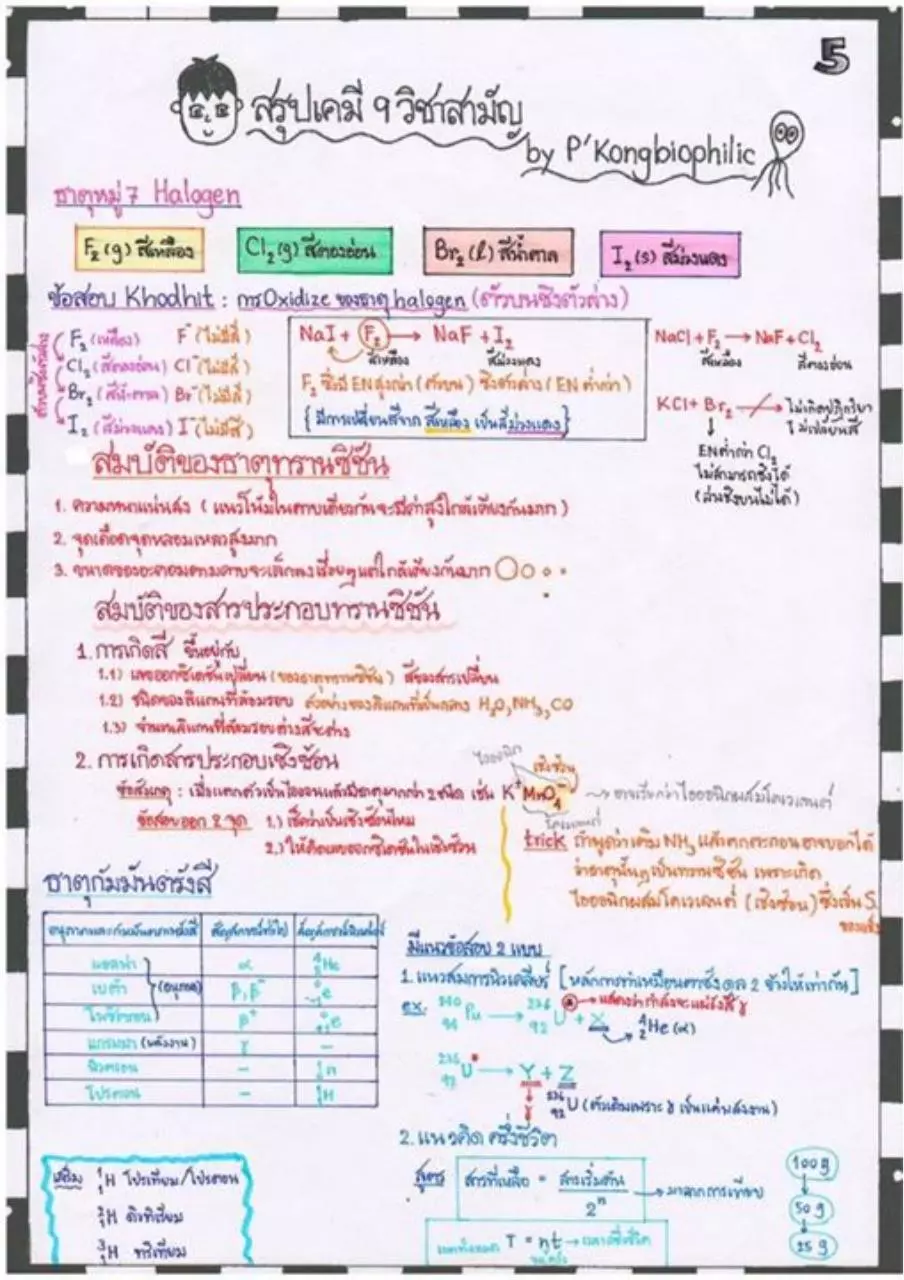 5
สรุปเคมี 9 วิชาสามัญ
by P'Kongbiophilic
ธาตุหมู่ 7 Halogen
F₂(g) สีเหลือง
Cl₂(g) สีตองอ่อน
Br₂(l) สีน้ำตาล
I₂(s) สีม่วงแดง
ข้อสอบ Khodhit : การ Oxidize ของธาตุ halogen (ตัวบนชิงตัวล่าง)
ตัวบนชิงตัวล่าง
F₂ (เหลือง) F⁻ (ไม่มีสี)
Cl₂ (สีตองอ่อน) Cl⁻ (ไม่มีสี)
Br₂ (สีน้ำตาล) Br⁻ (ไม่มีสี)
I₂ (สีม่วงแดง) I⁻ (ไม่มีสี)
NaI + F₂ → NaF + I₂
สีเหลือง สีม่วงแดง
F₂ ซึ่งมี EN สูงกว่า (ตัวบน) ชิงตัวล่าง (EN ต่ำกว่า)
{ มีการเปลี่ยนสีจาก สีเหลือง เป็นสีม่วงแดง }
NaCl + F₂ → NaF + Cl₂
สีเหลือง สีตองอ่อน
KCl + Br₂ → ไม่เกิดปฏิกิริยา
ไม่เปลี่ยนสี
EN ต่ำกว่า Cl₂
ไม่สามารถชิงได้
(ล่างชิงบนไม่ได้)
สมบัติของธาตุทรานซิชัน
1. ความหนาแน่นสูง (แนวโน้มในคาบเดียวกันจะมีค่าสูงใกล้เคียงกันมาก)
2. จุดเดือดจุดหลอมเหลวสูงมาก
3. ขนาดของอะตอมตามคาบจะเล็กลงเรื่อยๆแต่ใกล้เคียงกันมาก
สมบัติของสารประกอบทรานซิชัน
1. การเกิดสี ขึ้นอยู่กับ
1.1) เลขออกซิเดชันเปลี่ยน (ของธาตุทรานซิชัน) สีของสารเปลี่ยน
1.2) ชนิดของลิแกนที่ล้อมรอบ ตัวอย่างของลิแกนที่เป็นกลาง H₂O, NH₃, CO
1.3) จำนวนลิแกนที่ล้อมรอบต่างสีจะต่าง
2. การเกิดสารประกอบเชิงซ้อน
ไอออนิก เชิงซ้อน
ข้อสังเกต : เมื่อแตกตัวเป็นไอออนแล้วมีธาตุมากกว่า 2 ชนิด เช่น K⁺MnO₄⁻ → อาจเรียกว่าไอออนิกผสมโคเวเลนต์
โคเวเลนต์
ข้อสอบออก 2 จุด 1.) เช็คว่าเป็นเชิงซ้อนไหม
2.) ให้คิดเลขออกซิเดชันในเชิงซ้อน
trick ถ้าพูดว่าเติม NH₃ แล้วตกตะกอน อาจบอกได้
ว่าธาตุนั้นๆเป็นทรานซิชัน เพราะเกิด
ไอออนิกผสมโคเวเลนต์ (เชิงซ้อน) ซึ่งเป็น S.
ของแข็ง
ธาตุกัมมันตรังสี
อนุภาคและ สัญลักษณ์ทั่วไป สัญลักษณ์นิวเคลียร์
แอลฟา α ⁴₂He
เบต้า (อนุภาค) β, β⁻ ⁰₋₁e
โพซิตรอน β⁺ ⁰₊₁e
แกมมา (พลังงาน) γ –
นิวตรอน – ¹₀n
โปรตอน – ¹₁H
มีแนวข้อสอบ 2 แบบ
1. แนวสมการนิวเคลียร์ [หลักการทำเหมือนตาชั่ง ดุล 2 ข้างให้เท่ากัน]
→ แสดงว่ากำลังจะแผ่รังสี γ
ex. ²⁴⁰₉₄Pu → ²³⁶₉₂U* + X
→ ⁴₂He (α)
²³⁶₉₂U* → Y + Z
γ ²³⁶₉₂U (ตัวเดิมเพราะ γ เป็นแค่พลังงาน)
2. แนวคิด ครึ่งชีวิต
สูตร สารที่เหลือ = สารเริ่มต้น / 2ⁿ → มาจากการเทียบ
T = nt → เวลาครึ่งชีวิต
100 g
50 g
25 g
เสริม ¹₁H โปรเทียม/โปรตอน
²₁H ดิวทิเรียม
³₁H ทริเทียม